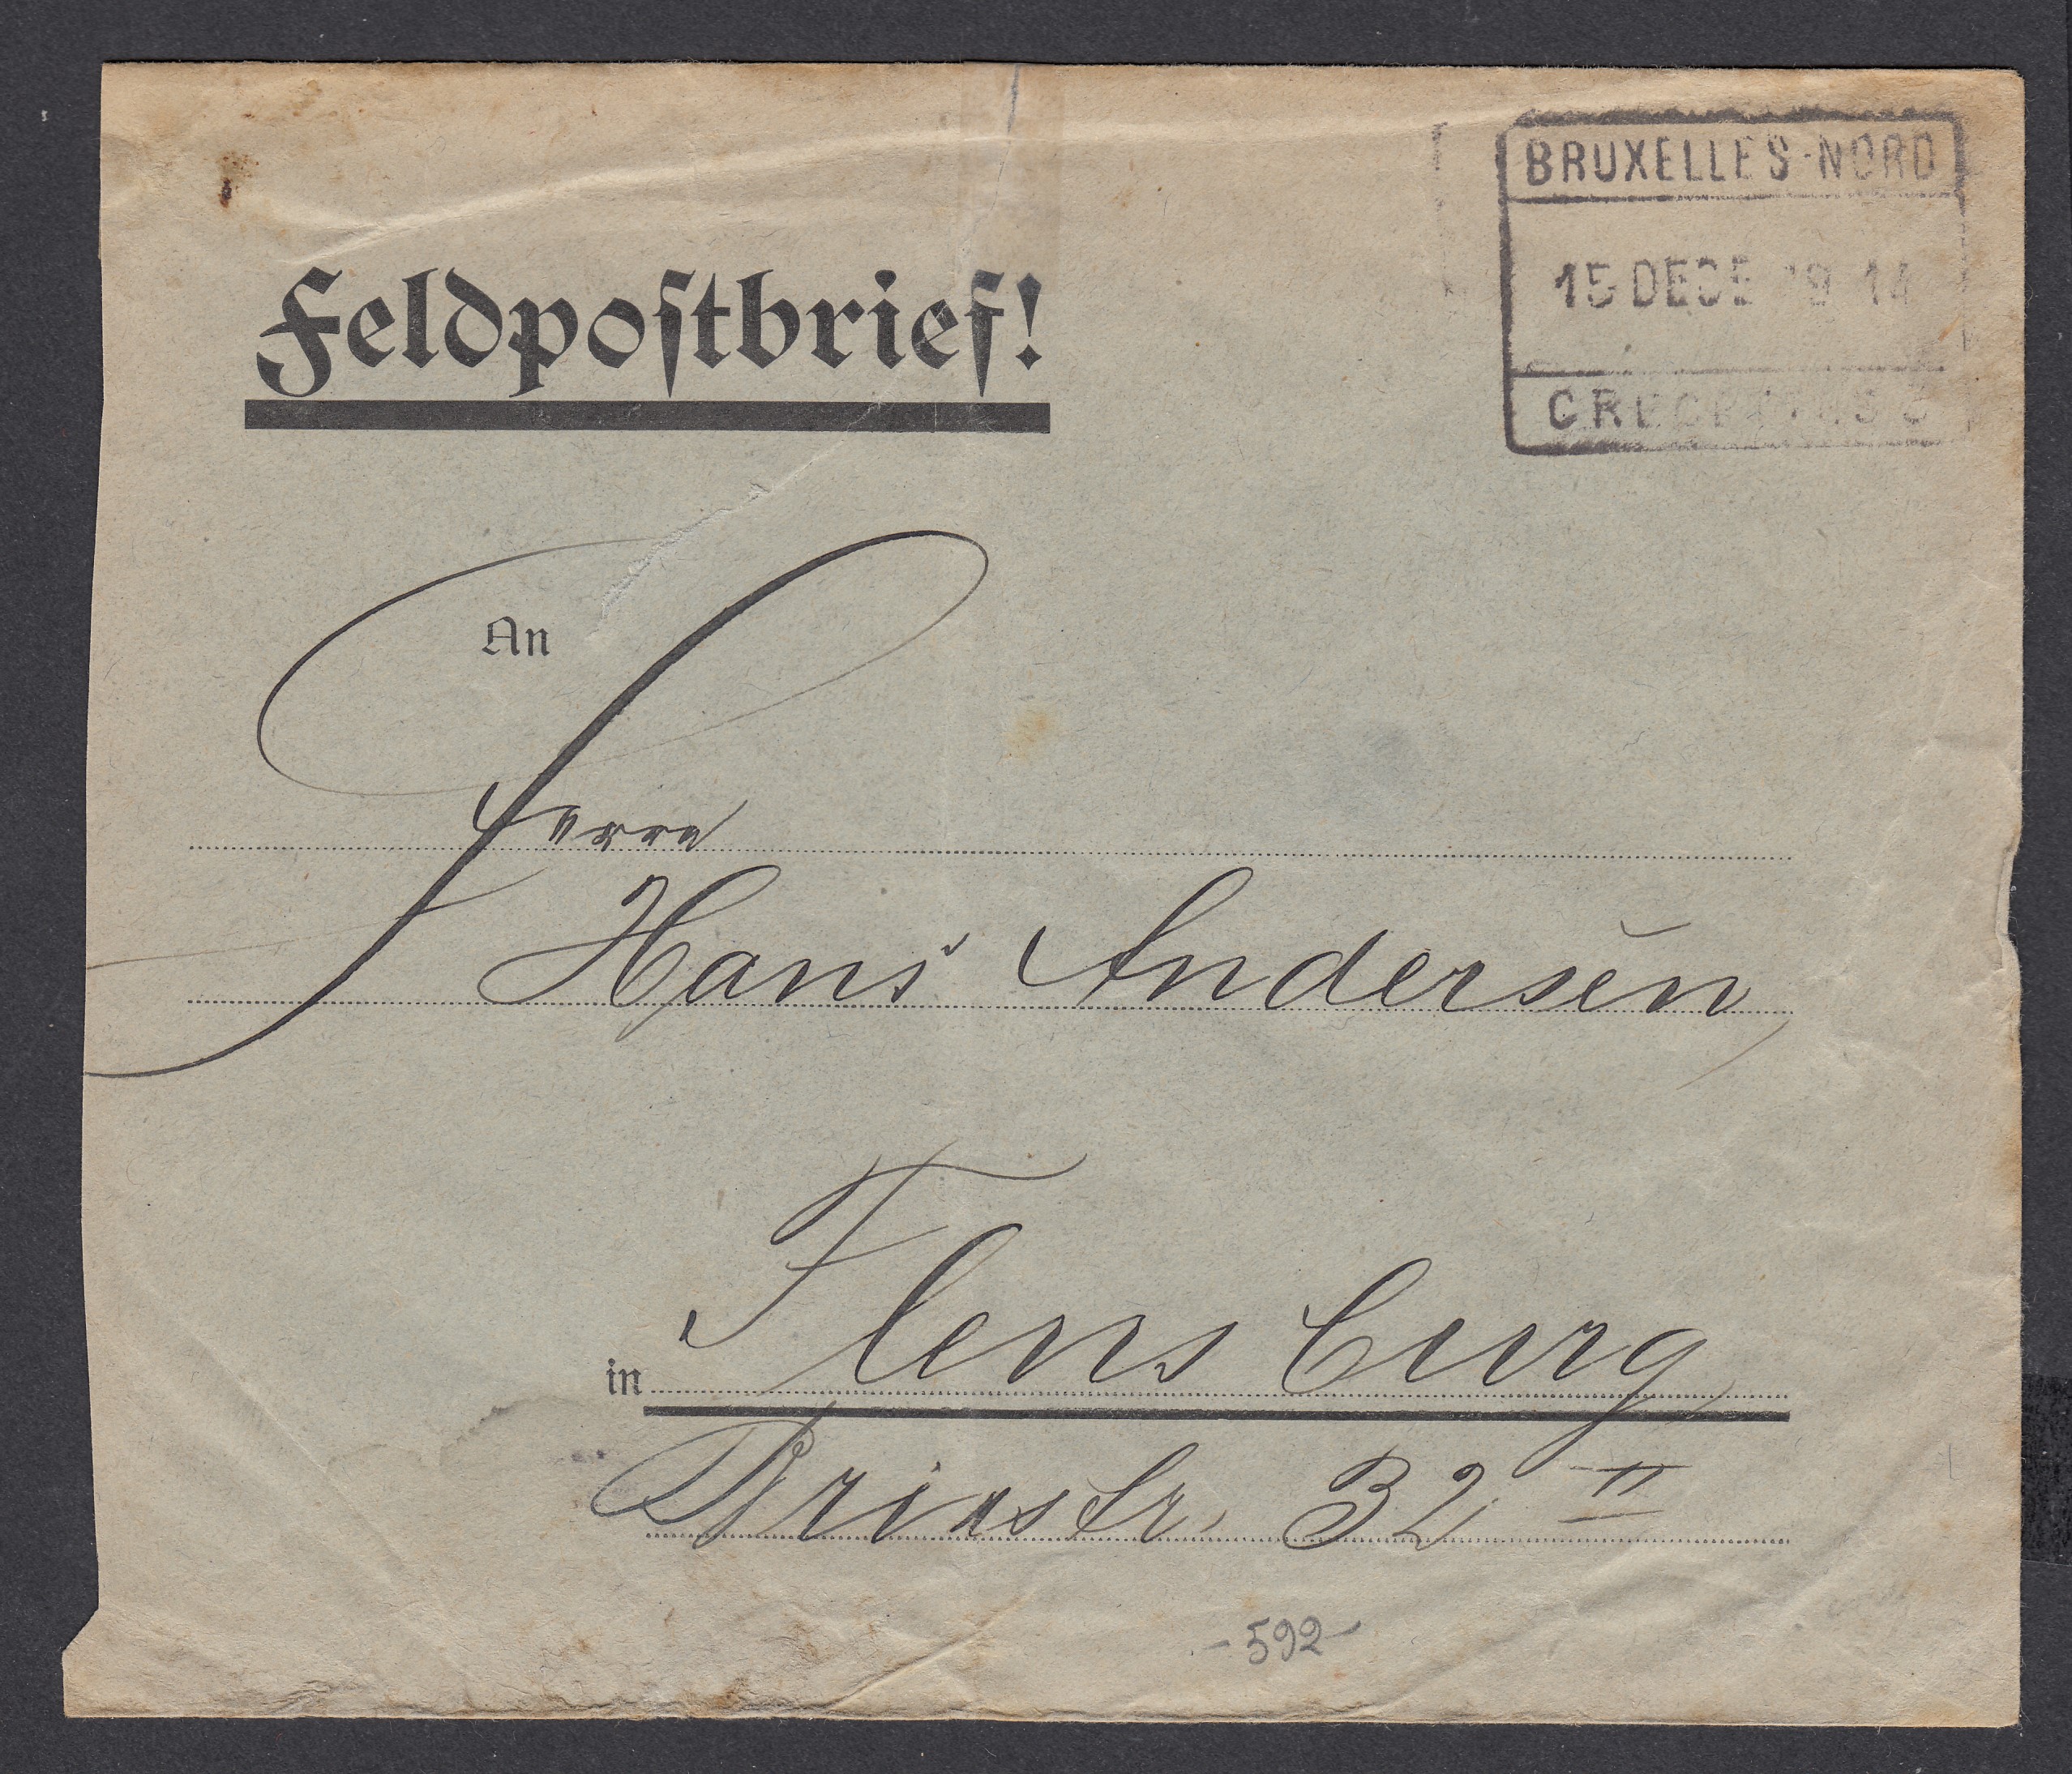 BRUXELLES-NORD
15 DECE 19 14
Feldpostbrief!
An
Herrn
Hans Andersen,
in Flensburg,
32 II
-592-